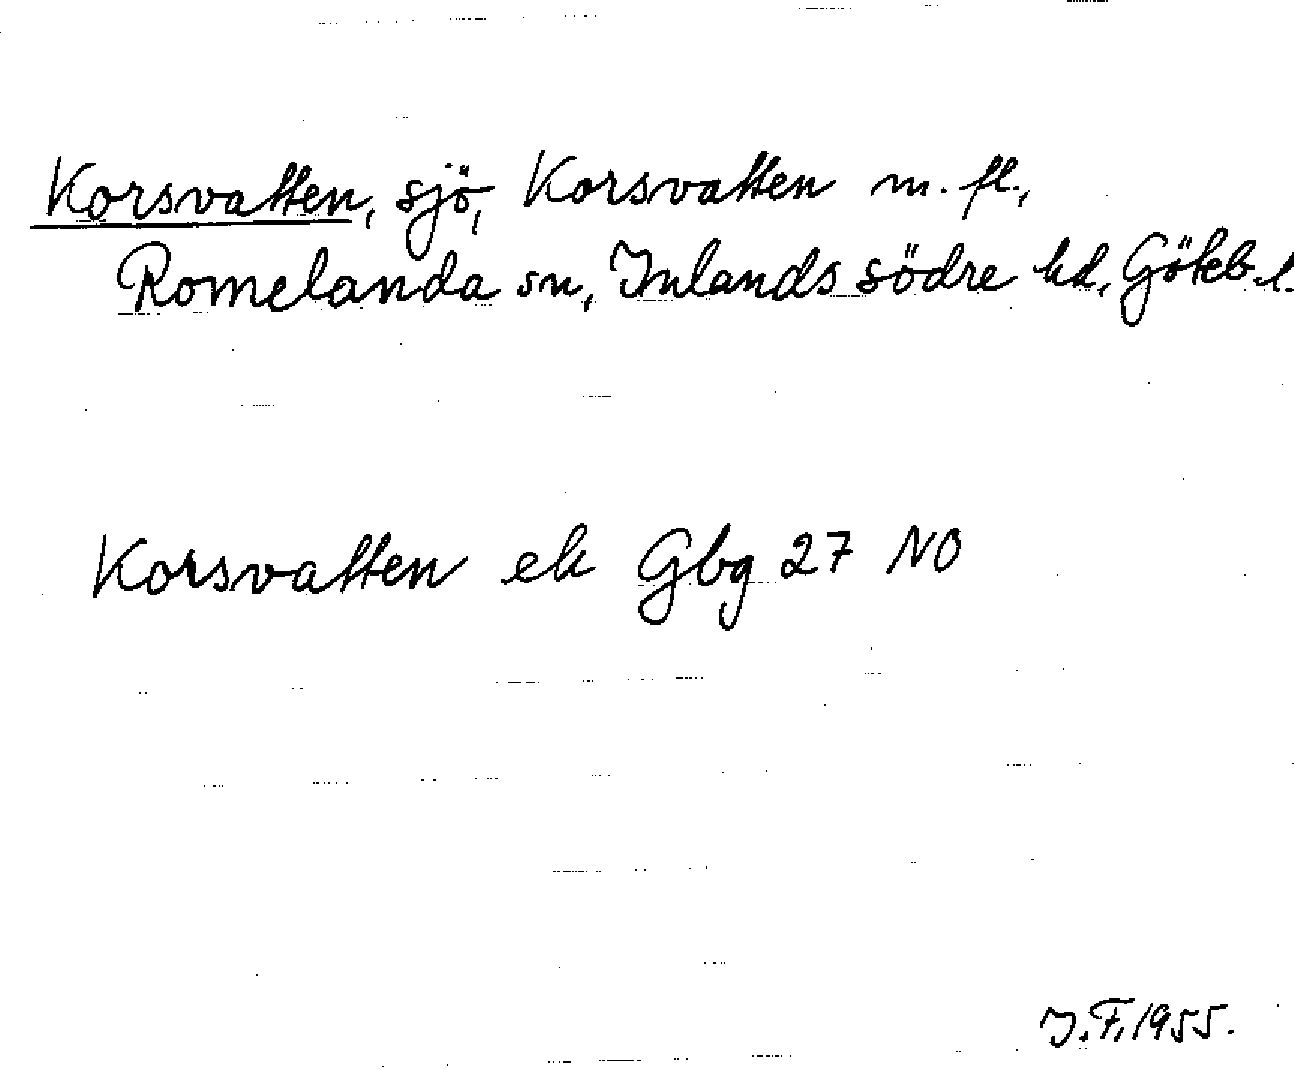 Korsvatten, sjö, Korsvatten m. fl.,
Romelanda sn, Inlands södre hd, Göteb. l.
Korsvatten ek Gbg 27 NO
J.F. 1955.